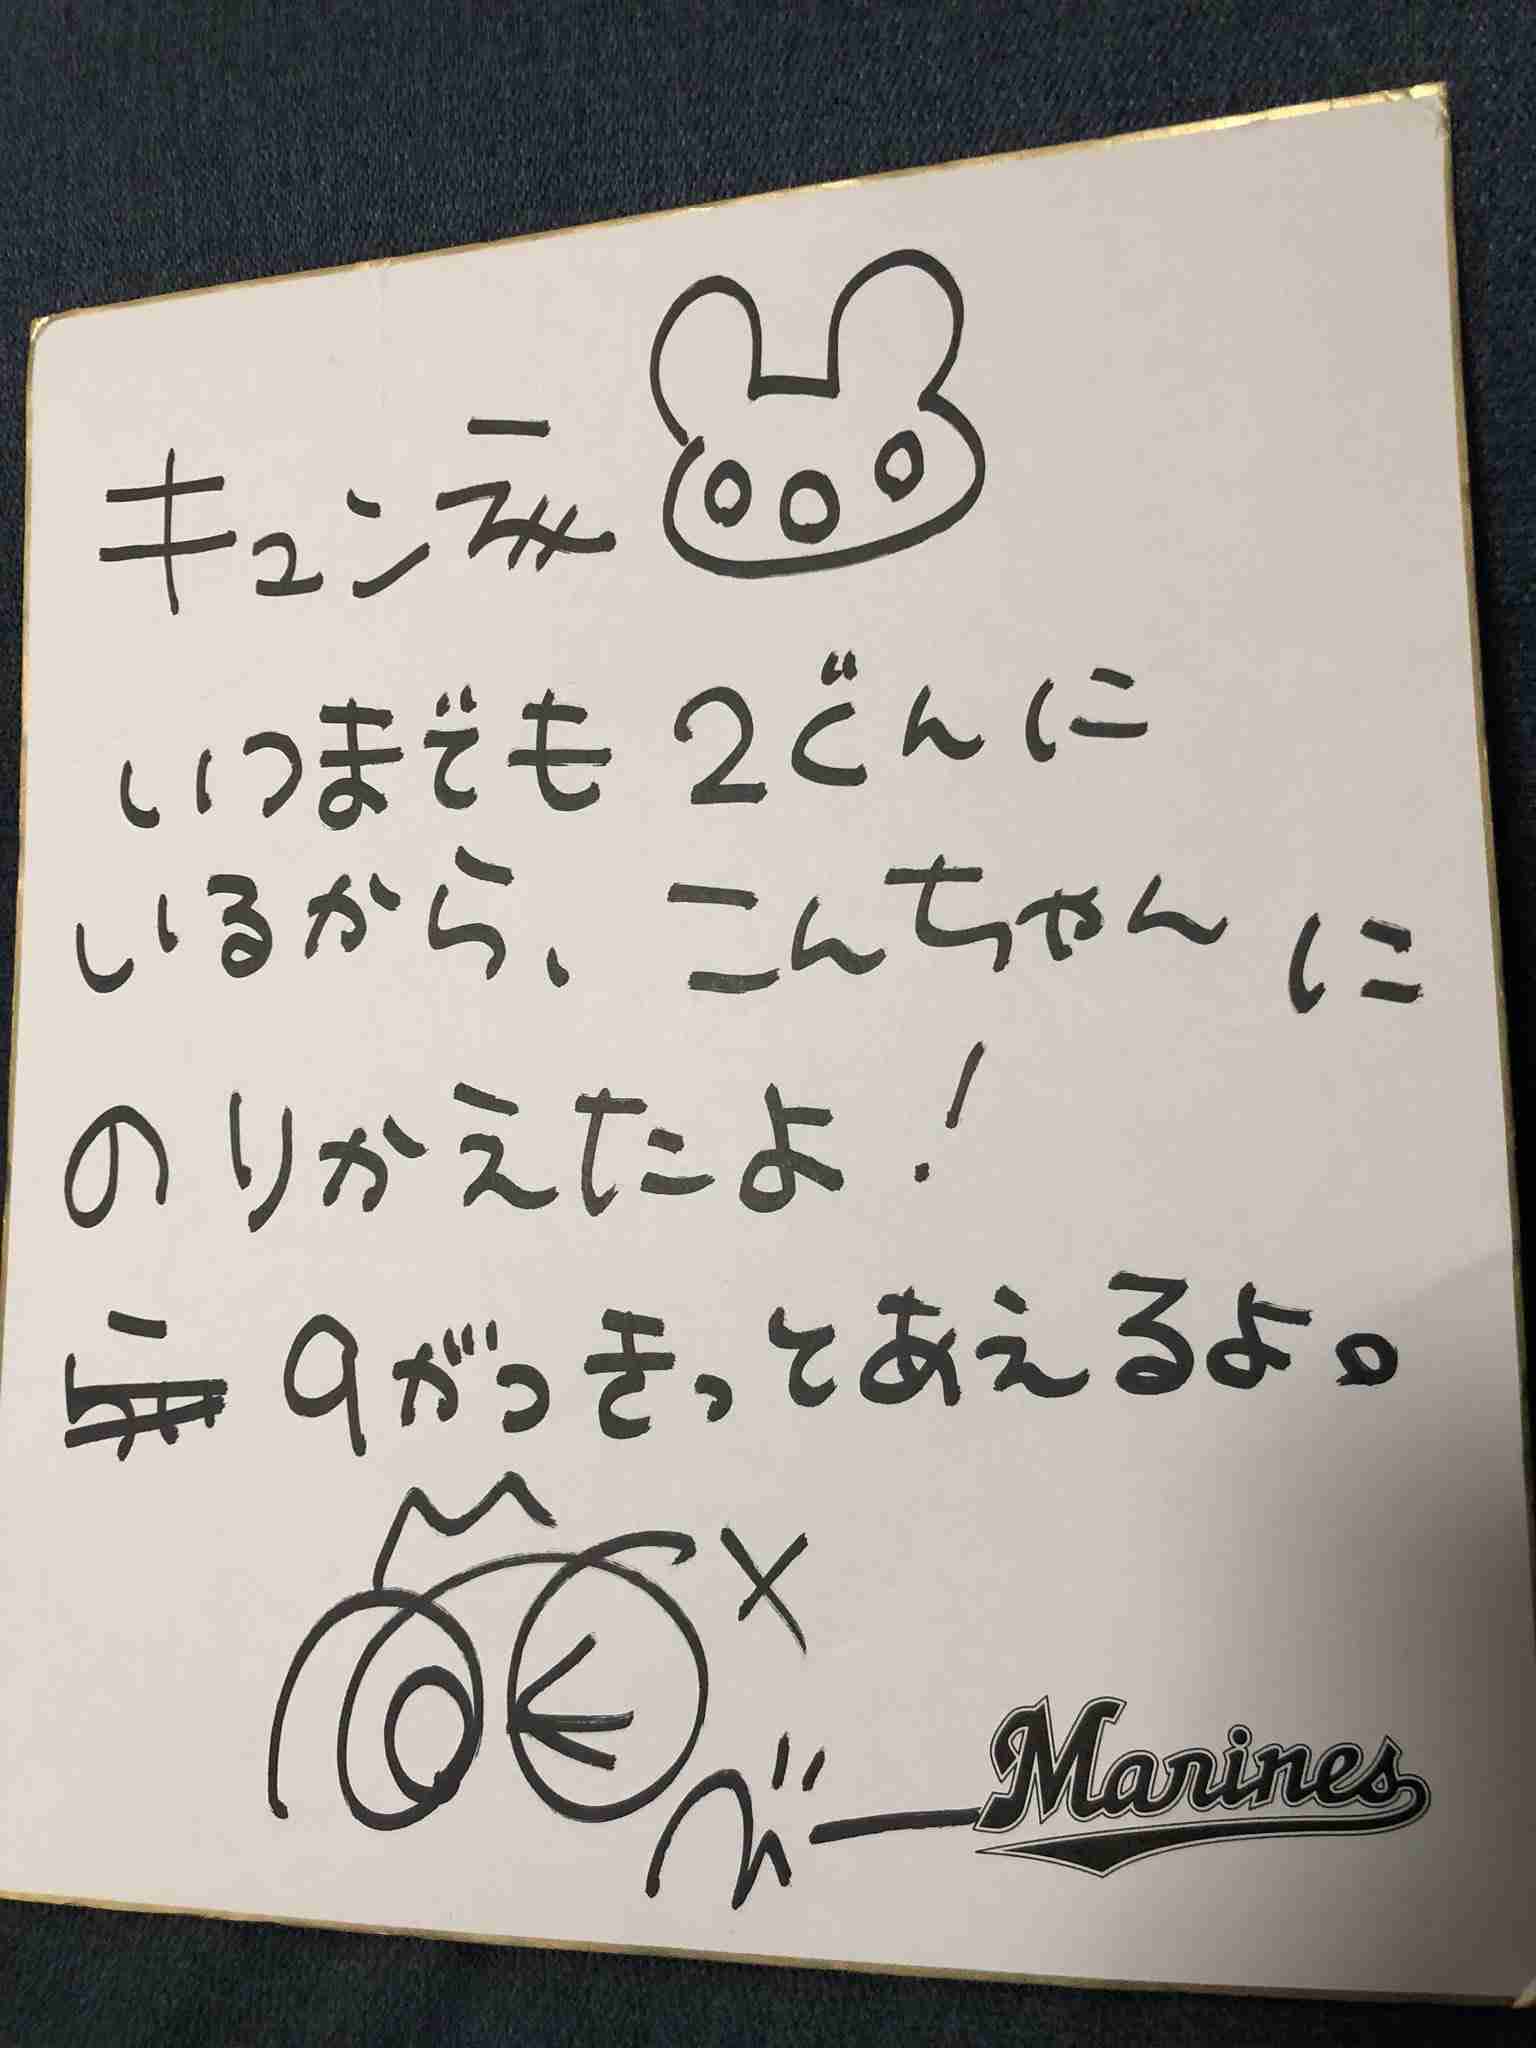 キュンえ
いつまでも 2ぐんに
いるから、こんちゃんに
のりかえたよ!
9がつきっとあえるよ。
Marines